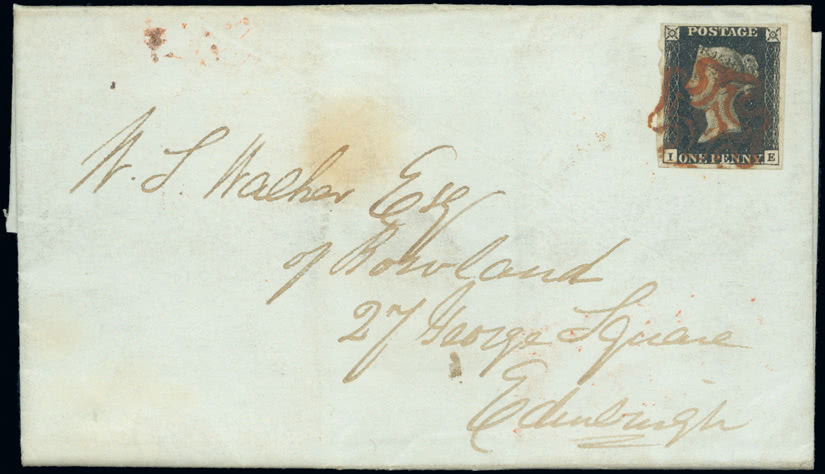 POSTAGE
I E
ONE PENNY
W. S. Walker Esqr
of Bowland
27 George Square
Edinburgh